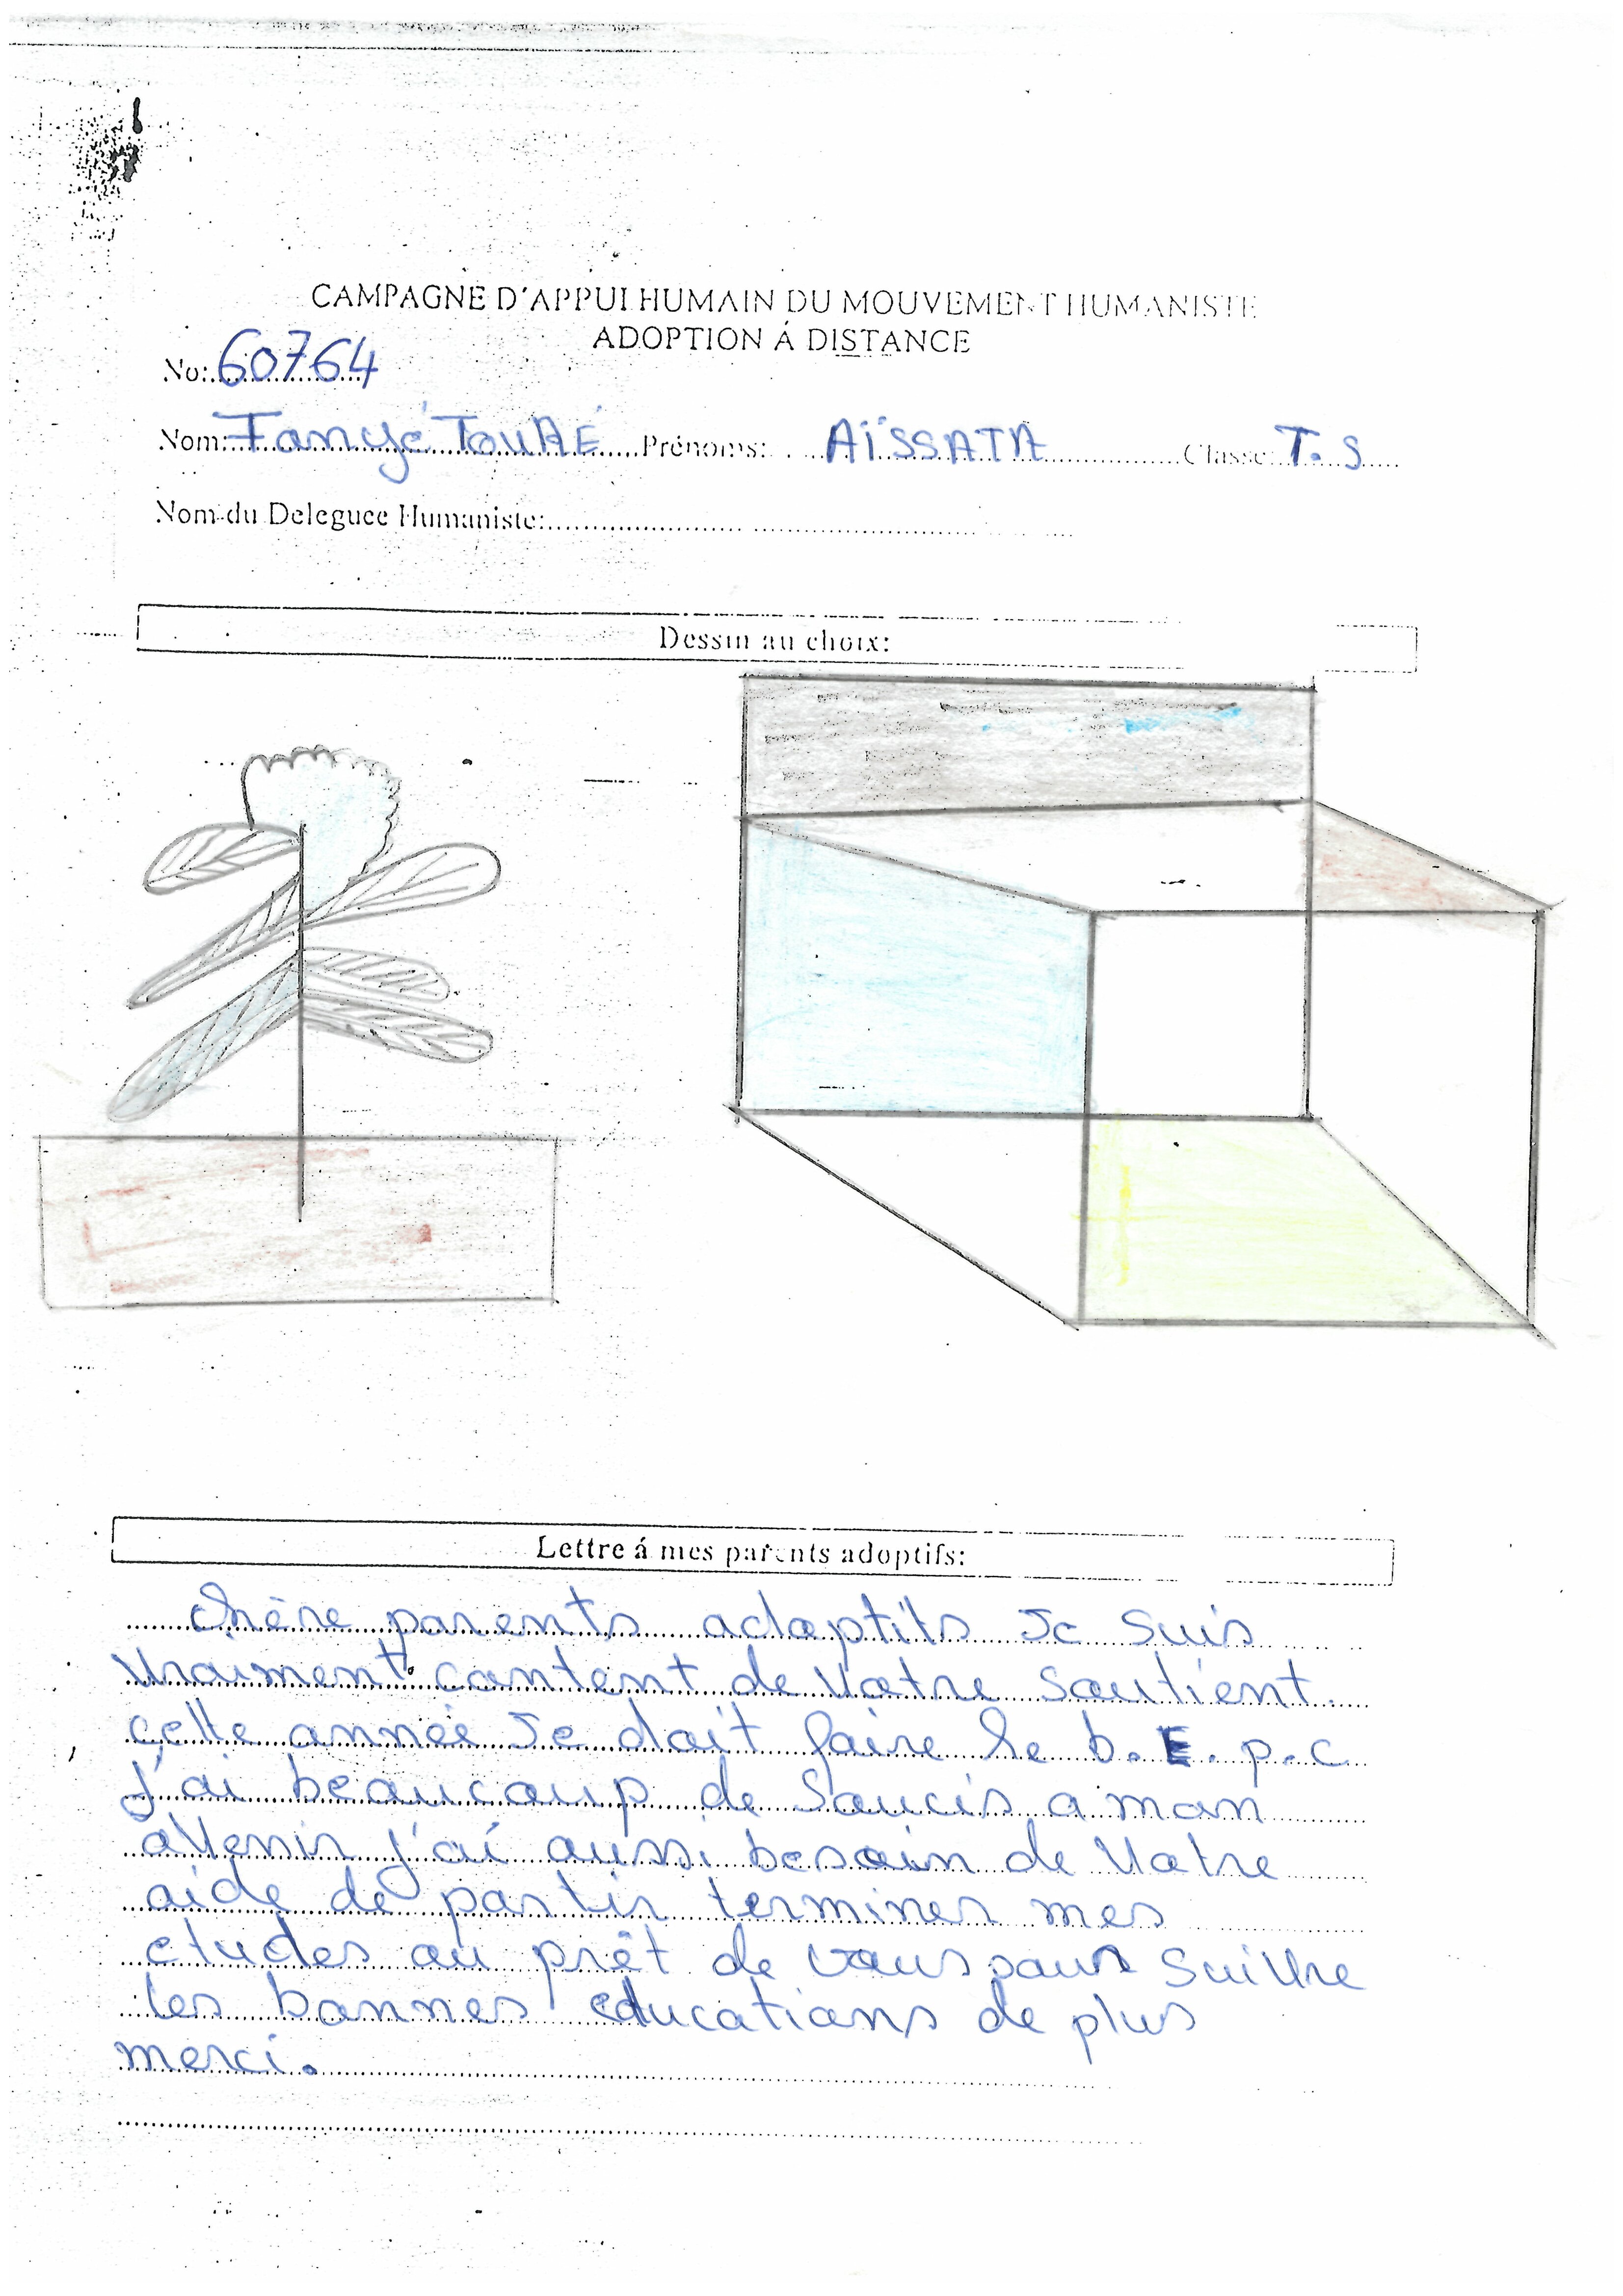 CAMPAGNE D'APPUI HUMAIN DU MOUVEMENT HUMANISTE
ADOPTION Á DISTANCE
No: 60764
Nom: Fanyé TouRÉ Prénoms: AÏSSATA Classe: T.S
Nom du Deleguee Humaniste:
Dessin au choix:
Lettre á mes parents adoptifs:
chère parents adoptifs Je suis
vraiment content de votre soutient.
cette année Je doit faire le b.E.p.c
J'ai beaucoup de soucis a mon
avenir j'ai aussi besoin de votre
aide de partir terminer mes
etudes au prêt de vous pour suivre
les bonnes educations de plus
merci.